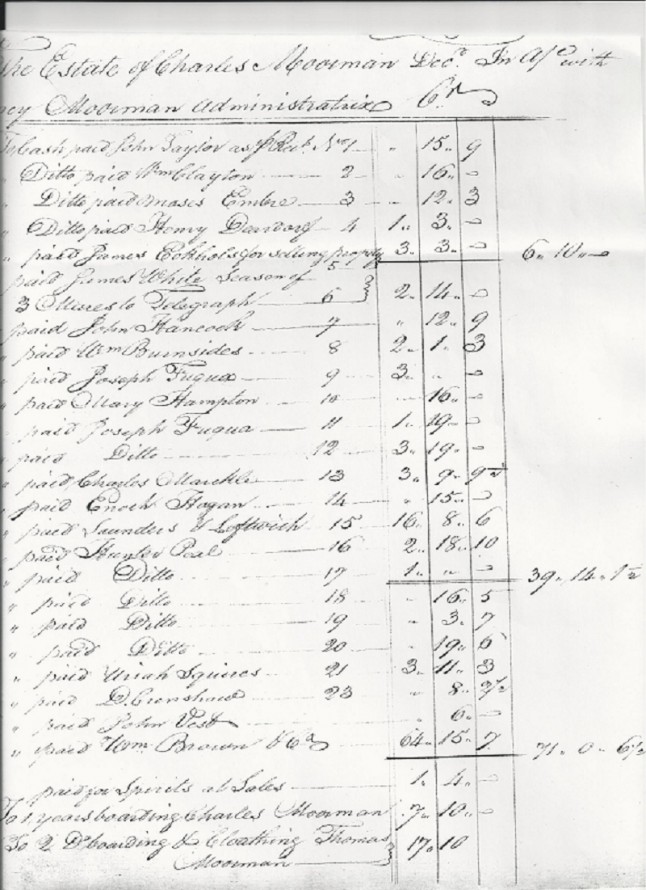 The Estate of Charles Moorman Decd. In A/c with
Moorman Administratrix
To Cash paid John Taylor as pr Rect. No 1 " 15 " 9
" Ditto paid Wm Clayton 2 " 16 " -
" Ditto paid Moses Embre 3 " 12 " 3
" Ditto paid Henry 4 1 " 3 " -
" paid James Echhols for selling property 5 3 " 3 " - 6 " 10 " -
paid James White Season of
3 Mares to Telegraph 6 2 " 14 " -
paid John Hancock 7 " 12 " 9
" paid Wm Burnsides 8 2 " 1 " 3
" paid Joseph Fuqua 9 3 " " -
" paid Mary Hampton 10 " 16 " -
" paid Joseph Fuqua 11 1 " 19 " -
" paid Ditto 12 3 " 19 " -
" paid Charles 13 3 " 9 " 9½
" paid Enoch Hogan 14 " 15 " -
" paid Saunders & Leftwich 15 16 " 8 " 6
" paid Hunter Peal 16 2 " 18 " 10
" paid Ditto 17 1 " " - 39 " 14 " 1½
" paid Ditto 18 " 16 " 5
" paid Ditto 19 " 3 " 7
" paid Ditto 20 " 19 " 6
" paid Uriah Squires 21 3 " 11 " 3
" paid D. Crenshaw 23 " 8 " 2½
" paid John Vest " 6 " -
" paid Wm. Brown & Co 64 " 15 " 7 71 " 0 " 6½
paid for Spirits at Sales 1 " 4 " -
To 1 years boarding Charles Moorman 7 " 10 " -
To 2 Do boarding & Cloathing Thomas
Moorman 17 " 10